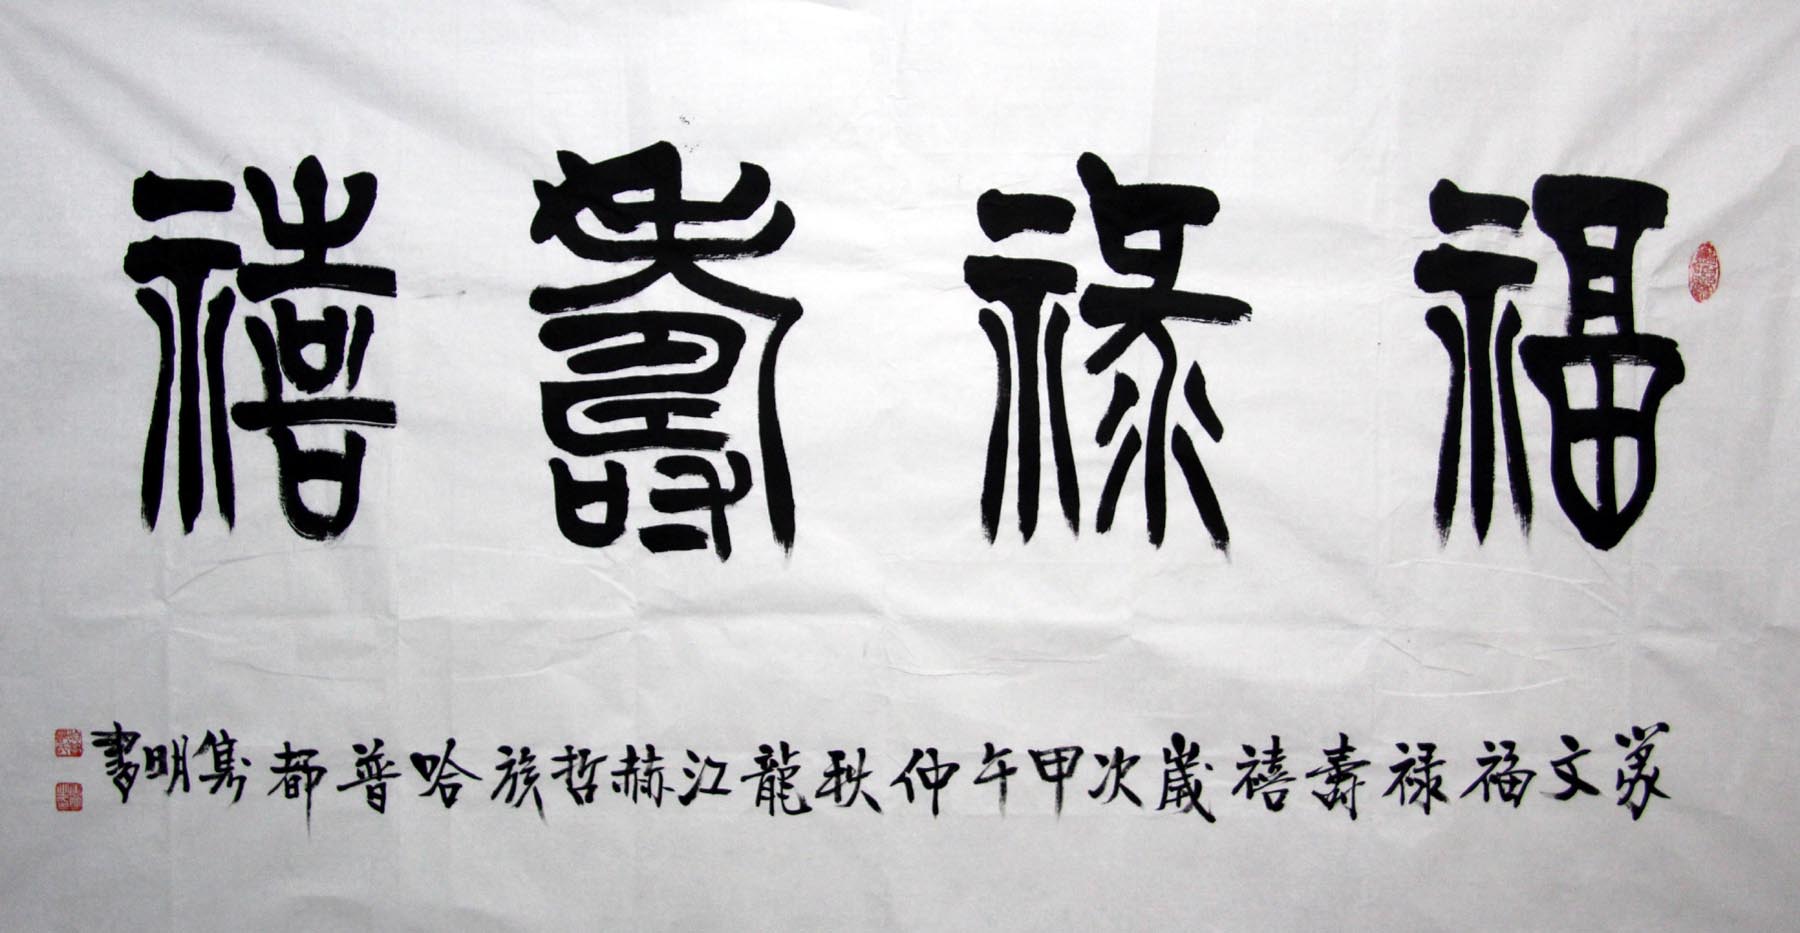 福祿壽禧
篆文福禄壽禧歲次甲午仲秋龍江赫哲族哈普都隽明書